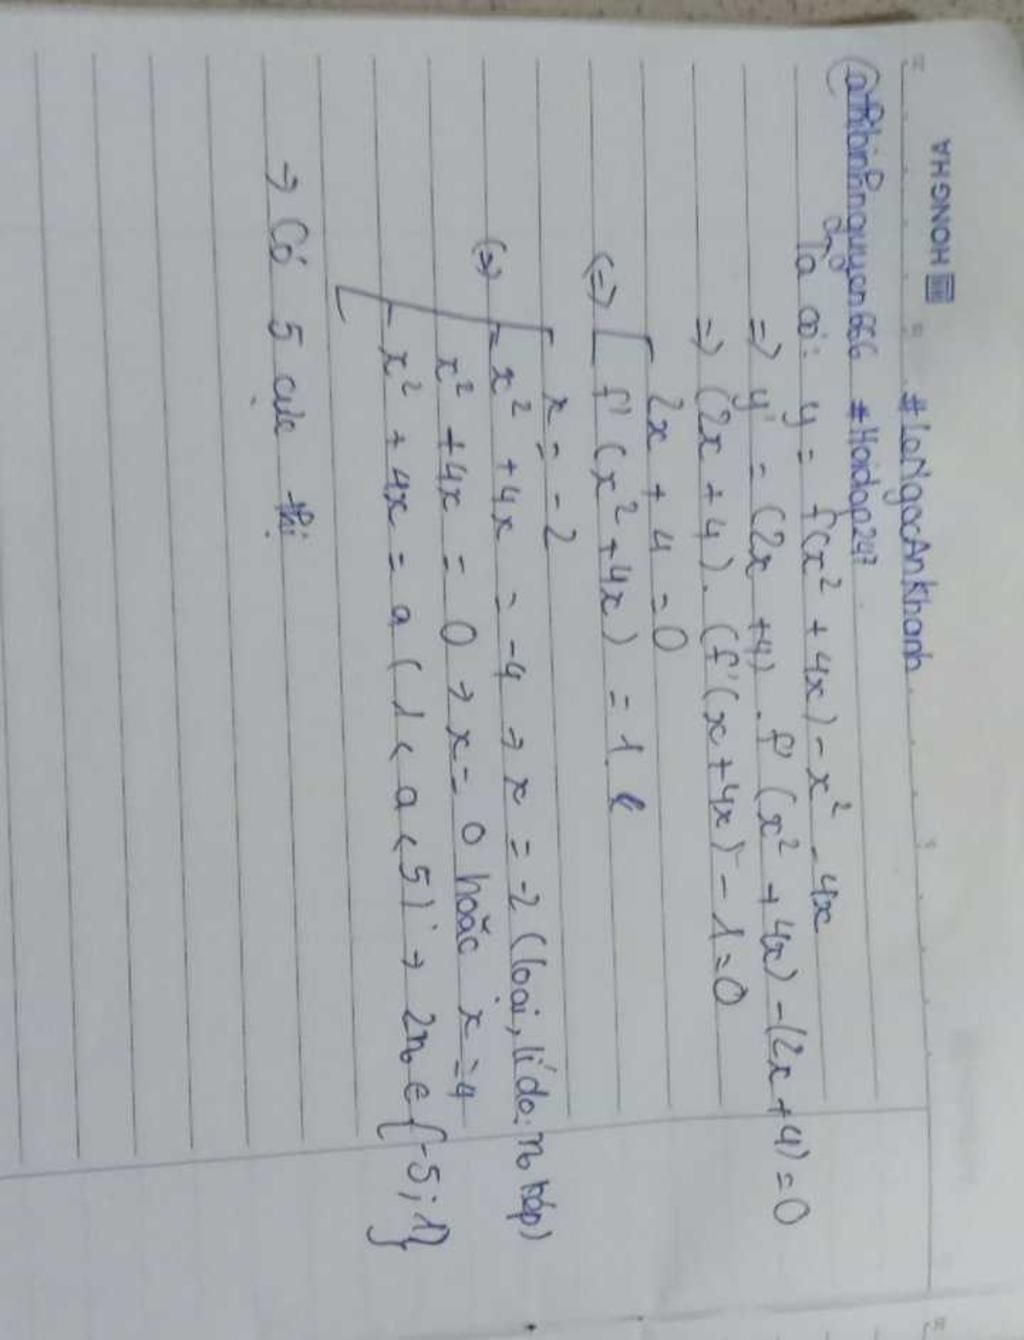 HONG HA
#LeNgocAnKhanh
@thinhnguyen666 #Hoidap247
Ta có: y = f(x² + 4x) - x² - 4x
=> y' = (2x + 4) . f' (x² + 4x) - (2x + 4) = 0
=> (2x + 4). (f'(x + 4x) - 1 = 0
2x + 4 = 0
(=) [ f' (x² + 4x) = 1
x = -2
(=) x² + 4x = -4 → x = -2 (loại, lí do: n₀ kép)
x² + 4x = 0 → x = 0 hoặc x = 4
x² + 4x = a (1 < a < 5) → 2n₀ ∈ {-5; 1}
→ Có 5 cực thị